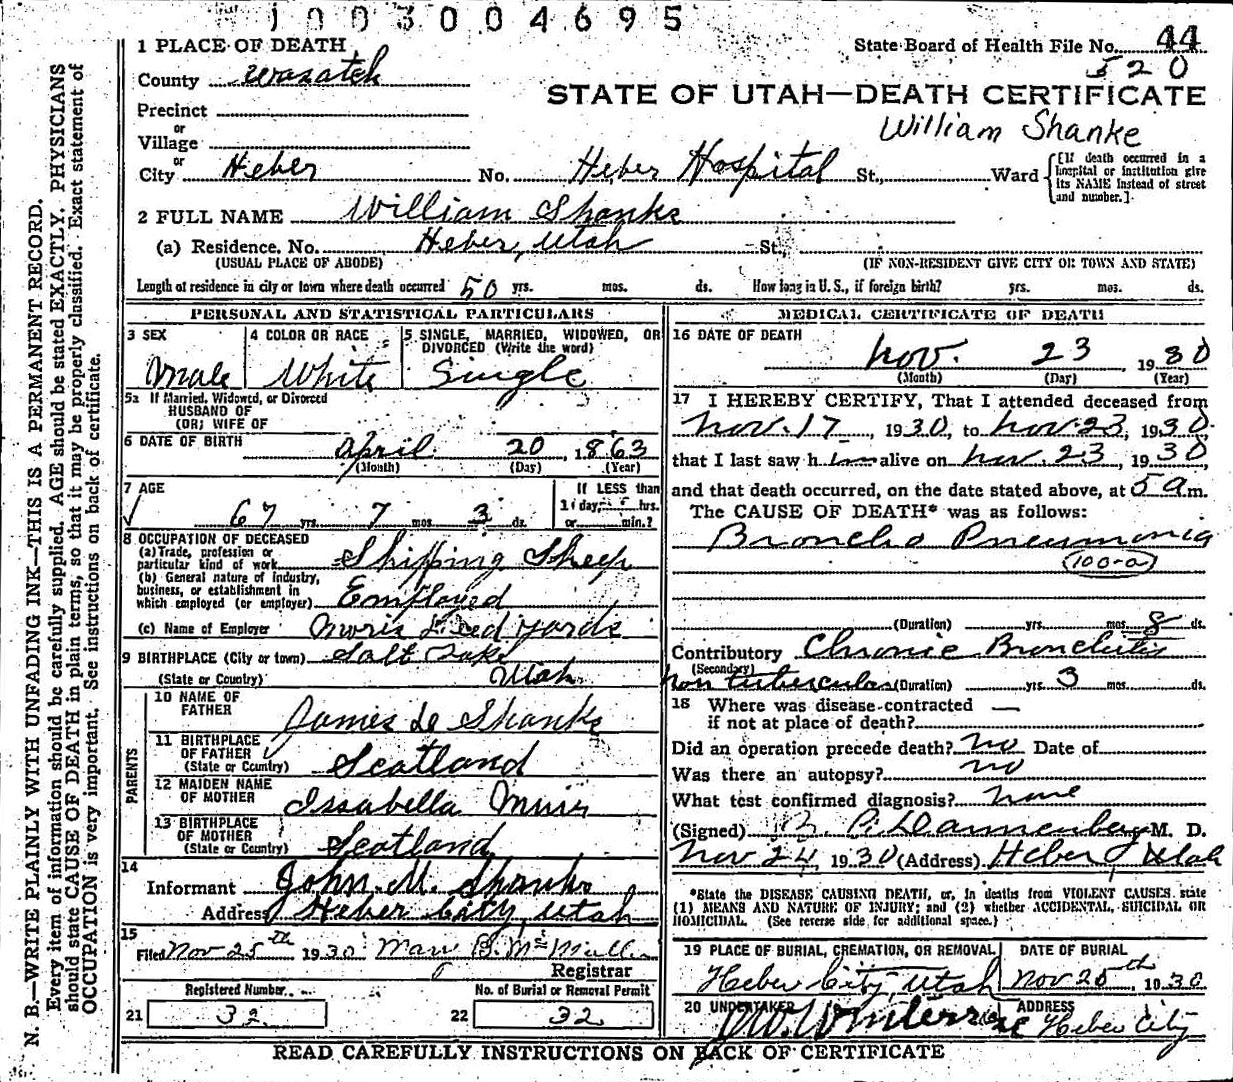 1003004695
1 PLACE OF DEATH State Board of Health File No. 44
County Wasatch 520
STATE OF UTAH—DEATH CERTIFICATE
Precinct
William Shanke
or
Village
or
City Heber No. Heber Hospital St., Ward [If death occurred in a hospital or institution give its NAME instead of street and number.]
2 FULL NAME William Shanks
(a) Residence, No. Heber, Utah St.,
(USUAL PLACE OF ABODE) (IF NON-RESIDENT GIVE CITY OR TOWN AND STATE)
Length of residence in city or town where death occurred 50 yrs. mos. ds. How long in U.S., if foreign birth? yrs. mos. ds.
PERSONAL AND STATISTICAL PARTICULARS
3 SEX 4 COLOR OR RACE 5 SINGLE, MARRIED, WIDOWED, OR
DIVORCED (Write the word)
Male White Single
5a If Married, Widowed, or Divorced
HUSBAND OF
(OR) WIFE OF
6 DATE OF BIRTH April 20, 1863
(Month) (Day) (Year)
7 AGE If LESS than
1 day, hrs.
67 yrs. 7 mos. 3 ds. or min.?
8 OCCUPATION OF DECEASED
(a) Trade, profession or
particular kind of work Shipping Sheep
(b) General nature of industry,
business, or establishment in
which employed (or employer) Employed
(c) Name of Employer
9 BIRTHPLACE (City or town) Salt Lake
(State or Country) Utah
PARENTS
10 NAME OF
FATHER James Shanks
11 BIRTHPLACE
OF FATHER
(State or Country) Scotland
12 MAIDEN NAME
OF MOTHER Issabella Muir
13 BIRTHPLACE
OF MOTHER
(State or Country) Scotland
14
Informant John M. Shanks
Address Heber City, Utah
15
Filed Nov 25th 1930
Registrar
Registered Number No. of Burial or Removal Permit
21 32 22 32
MEDICAL CERTIFICATE OF DEATH
16 DATE OF DEATH
Nov. 23, 1930
(Month) (Day) (Year)
17 I HEREBY CERTIFY, That I attended deceased from
Nov. 17, 1930, to Nov. 23, 1930,
that I last saw h im alive on Nov. 23, 1930,
and that death occurred, on the date stated above, at 5 a.m.
The CAUSE OF DEATH* was as follows:
Broncho Pneumonia
(100-a)
(Duration) yrs. mos. 8 ds.
Contributory Chronic Bronchitis
(Secondary)
non tubercular (Duration) yrs. 3 mos. ds.
18 Where was disease contracted —
if not at place of death?
Did an operation precede death? no Date of
Was there an autopsy? no
What test confirmed diagnosis? none
(Signed) Dannenberg M. D.
Nov 24, 1930 (Address) Heber Utah
*State the DISEASE CAUSING DEATH, or, in deaths from VIOLENT CAUSES, state
(1) MEANS AND NATURE OF INJURY; and (2) whether ACCIDENTAL, SUICIDAL OR
HOMICIDAL. (See reverse side for additional space.)
19 PLACE OF BURIAL, CREMATION, OR REMOVAL DATE OF BURIAL
Heber City, Utah Nov 25th, 1930
20 UNDERTAKER ADDRESS
Heber City
READ CAREFULLY INSTRUCTIONS ON BACK OF CERTIFICATE
N. B.—WRITE PLAINLY WITH UNFADING INK—THIS IS A PERMANENT RECORD.
Every item of information should be carefully supplied. AGE should be stated EXACTLY. PHYSICIANS
should state CAUSE OF DEATH in plain terms, so that it may be properly classified. Exact statement of
OCCUPATION is very important. See instructions on back of certificate.